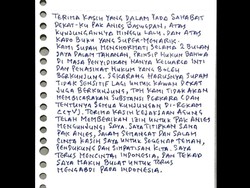 TERIMA KASIH YANG DALAM PADA SAHABAT
DEKAT-KU PAK ANIES BASWEDAN, ATAS
KUNJUNGANNYA MINGGU LALU, DAN ATAS
KADO BUKU YANG SUPER-MENARIK.
KAMI SUDAH MENGHORMATI SELAMA 2 BULAN
SAYA DALAM TAHANAN, PRINSIP HUKUM BAHWA
DI MASA PENYIDIKAN HANYA KELUARGA INTI
DAN PENASIHAT HUKUM YANG BOLEH
BERKUNJUNG. SEKARANG HARUSNYA SUDAH
TIDAK SENSITIF LAGI UNTUK KAWAN DEKAT
JUGA BERKUNJUNG, TOH KAMI TIDAK AKAN
MEMBICARAKAN SUBSTANSI PERKARA (DAN
TENTUNYA SEMUA KUNJUNGAN DI-REKAM
CCTV). TERIMA KASIH KEJAKSAAN AGUNG
TELAH MEMBERIKAN IZIN UNTUK PAK ANIES
MENGUNJUNGI SAYA. SAYA TITIPKAN SAMA
PAK ANIES, SALAM SEMANGAT DAN SALAM
CINTA KASIH SAYA UNTUK SEGENAP TEMAN,
PENDUKUNG DAN SIMPATISAN KAMI. SAYA
TERUS MENCINTAI INDONESIA, DAN TEKAD
SAYA MAKIN BULAT UNTUK TERUS
MENGABDI PARA INDONESIA.